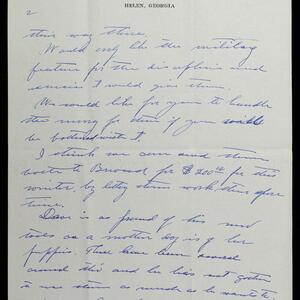 HELEN, GEORGIA
2
this way there.
Would only like the military
feature for the discipline and
I would give them.
We would like for you to handle
the money for them if you will
be bothered with it.
I think we can send them
back to Brevard for $200.00 for this
winter, by letting them work there after
time.
Dave is as proud of his new
tools as a mother dog is of her
puppies. There have been several
around this and he has not gotten
to use them as much as he wants to.